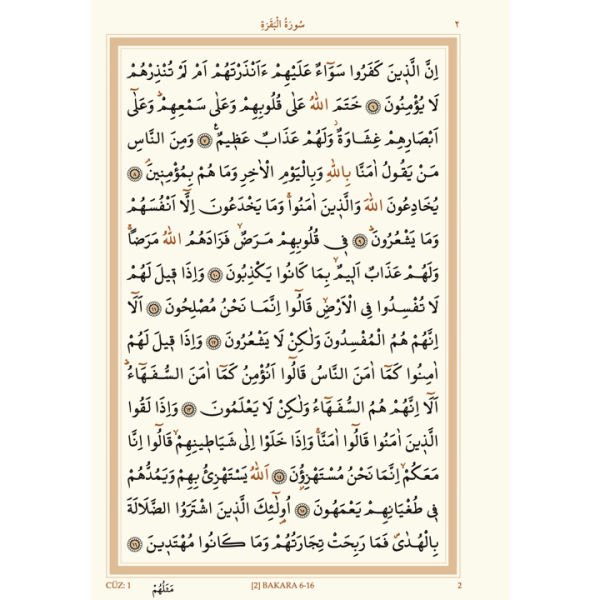 سُورَةُ الْبَقَرَةِ ٢
اِنَّ الَّذ۪ينَ كَفَرُوا سَوَٓاءٌ عَلَيْهِمْ ءَاَنْذَرْتَهُمْ اَمْ لَمْ تُنْذِرْهُمْ
لَا يُؤْمِنُونَ ﴿٦﴾ خَتَمَ اللّٰهُ عَلٰى قُلُوبِهِمْ وَعَلٰى سَمْعِهِمْۜ وَعَلٰٓى
اَبْصَارِهِمْ غِشَاوَةٌۘ وَلَهُمْ عَذَابٌ عَظ۪يمٌ۟ ﴿٧﴾ وَمِنَ النَّاسِ
مَنْ يَقُولُ اٰمَنَّا بِاللّٰهِ وَبِالْيَوْمِ الْاٰخِرِ وَمَا هُمْ بِمُؤْمِن۪ينَۢ ﴿٨﴾
يُخَادِعُونَ اللّٰهَ وَالَّذ۪ينَ اٰمَنُواۚ وَمَا يَخْدَعُونَ اِلَّٓا اَنْفُسَهُمْ
وَمَا يَشْعُرُونَۜ ﴿٩﴾ ف۪ي قُلُوبِهِمْ مَرَضٌۙ فَزَادَهُمُ اللّٰهُ مَرَضاًۚ
وَلَهُمْ عَذَابٌ اَل۪يمٌۙ بِمَا كَانُوا يَكْذِبُونَ ﴿١٠﴾ وَاِذَا ق۪يلَ لَهُمْ
لَا تُفْسِدُوا فِي الْاَرْضِۙ قَالُٓوا اِنَّمَا نَحْنُ مُصْلِحُونَ ﴿١١﴾ اَلَٓا
اِنَّهُمْ هُمُ الْمُفْسِدُونَ وَلٰكِنْ لَا يَشْعُرُونَ ﴿١٢﴾ وَاِذَا ق۪يلَ لَهُمْ
اٰمِنُوا كَمَٓا اٰمَنَ النَّاسُ قَالُٓوا اَنُؤْمِنُ كَمَٓا اٰمَنَ السُّفَهَٓاءُۜ
اَلَٓا اِنَّهُمْ هُمُ السُّفَهَٓاءُ وَلٰكِنْ لَا يَعْلَمُونَ ﴿١٣﴾ وَاِذَا لَقُوا
الَّذ۪ينَ اٰمَنُوا قَالُٓوا اٰمَنَّاۚ وَاِذَا خَلَوْا اِلٰى شَيَاط۪ينِهِمْۙ قَالُٓوا اِنَّا
مَعَكُمْۙ اِنَّمَا نَحْنُ مُسْتَهْزِؤُ۫نَ ﴿١٤﴾ اَللّٰهُ يَسْتَهْزِئُ بِهِمْ وَيَمُدُّهُمْ
ف۪ي طُغْيَانِهِمْ يَعْمَهُونَ ﴿١٥﴾ اُو۬لٰٓئِكَ الَّذ۪ينَ اشْتَرَوُا الضَّلَالَةَ
بِالْهُدٰىۖ فَمَا رَبِحَتْ تِجَارَتُهُمْ وَمَا كَانُوا مُهْتَد۪ينَ ﴿١٦﴾
CÜZ: 1 مَثَلُهُمْ [2] BAKARA 6-16 2